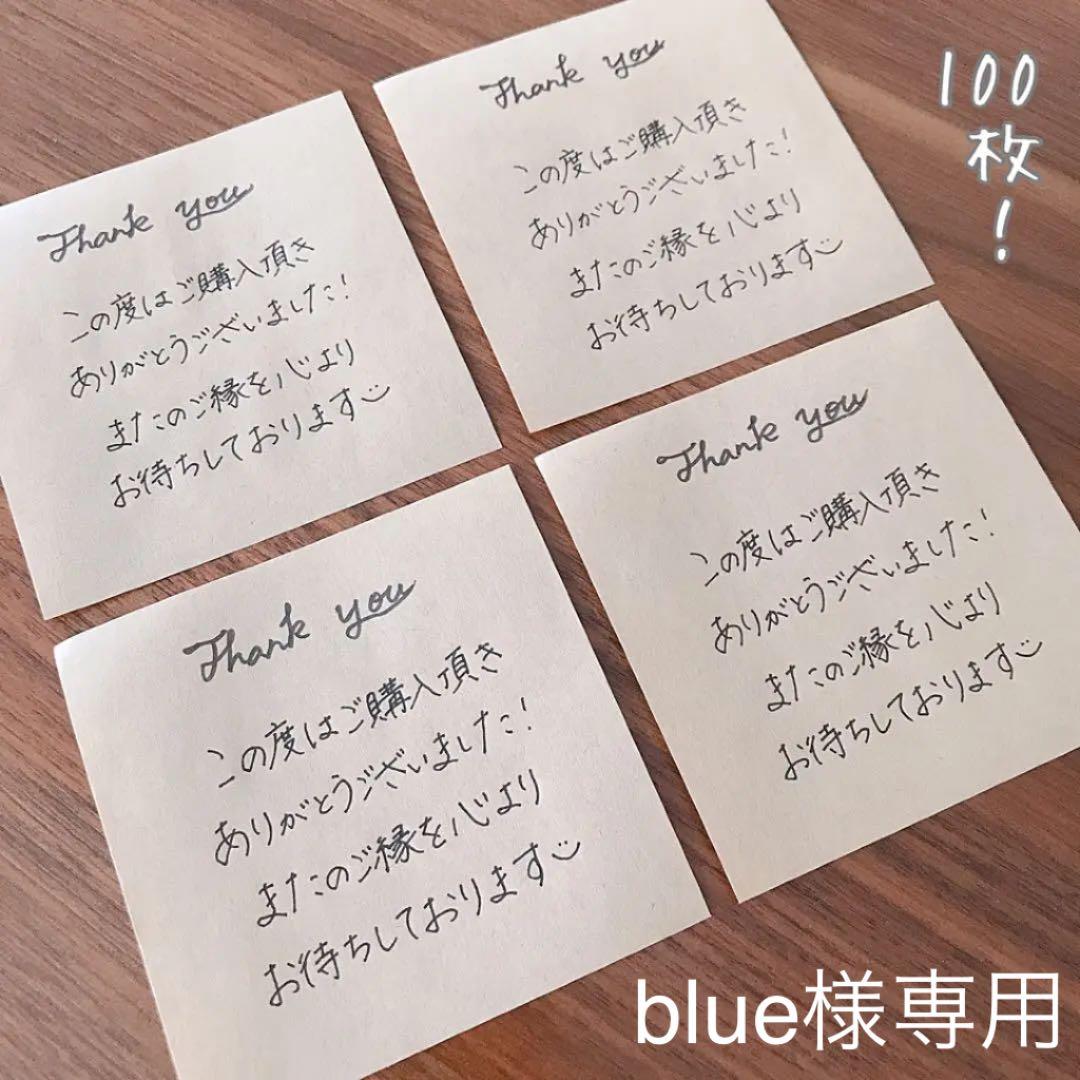 Thank you
この度はご購入頂き
ありがとうございました!
またのご縁を心より
お待ちしております
Thank you
この度はご購入頂き
ありがとうございました!
またのご縁を心より
お待ちしております
100
枚!
Thank you
この度はご購入頂き
ありがとうございました!
またのご縁を心より
お待ちしております
Thank you
この度はご購入頂き
ありがとうございました!
またのご縁を心より
お待ちしております
blue様専用